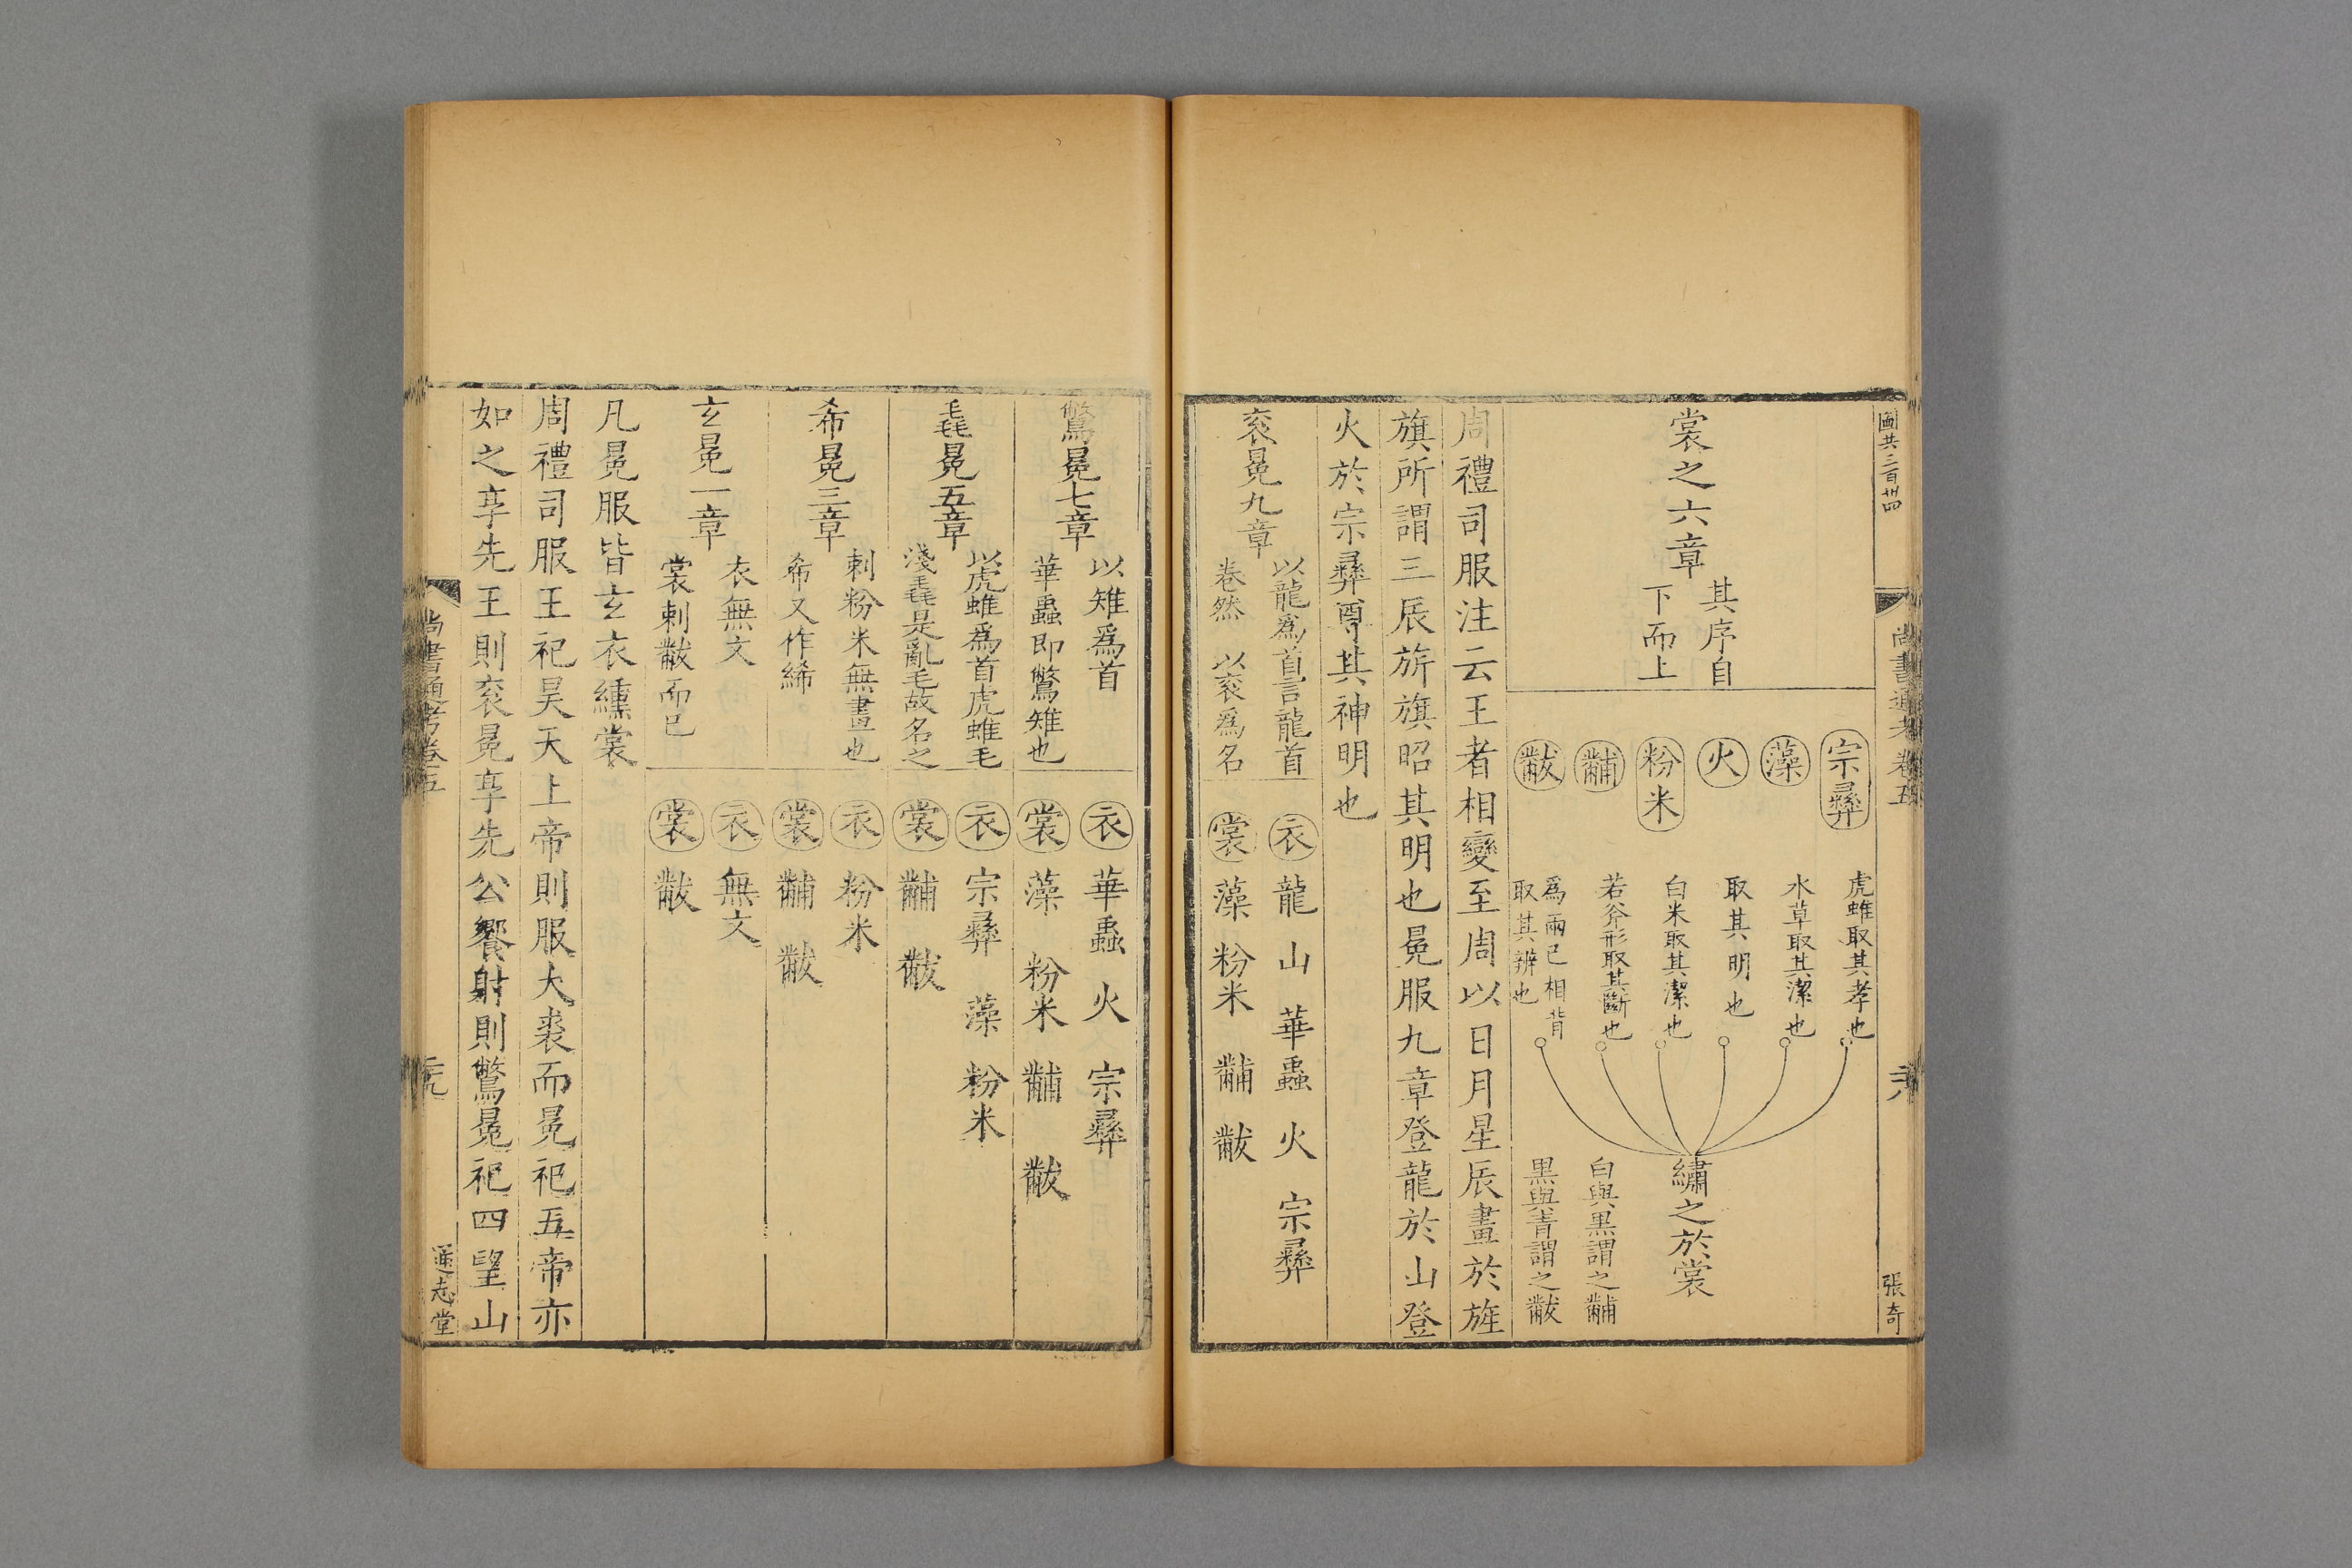 圖共三百卅四
尚書通考卷五
六
張奇
裳之六章
其序自
下而上
宗彝
虎蜼取其孝也
藻
水草取其潔也
火
取其明也
粉米
白米取其潔也
黼
若斧形取其斷也
黻
爲兩己相背
取其辨也
繡之於裳
白與黑謂之黼
黑與青謂之黻
周禮司服注云王者相變至周以日月星辰畫於旌
旗所謂三辰旂旗昭其明也冕服九章登龍於山登
火於宗彝尊其神明也
袞冕九章
以龍爲首言龍首
卷然 以袞爲名
衣 龍 山 華蟲 火 宗彝
裳 藻 粉米 黼 黻
鷩冕七章
以雉爲首
華蟲即鷩雉也
衣 華蟲 火 宗彝
裳 藻 粉米 黼 黻
毳冕五章
以虎蜼爲首虎蜼毛
淺毳是亂毛故名之
衣 宗彝 藻 粉米
裳 黼 黻
希冕三章
刺粉米無畫也
希又作絺
衣 粉米
裳 黼 黻
玄冕一章
衣無文
裳刺黻而已
衣 無文
裳 黻
凡冕服皆玄衣纁裳
周禮司服王祀昊天上帝則服大裘而冕祀五帝亦
如之享先王則袞冕享先公饗射則鷩冕祀四望山
尚書通考卷五
通志堂